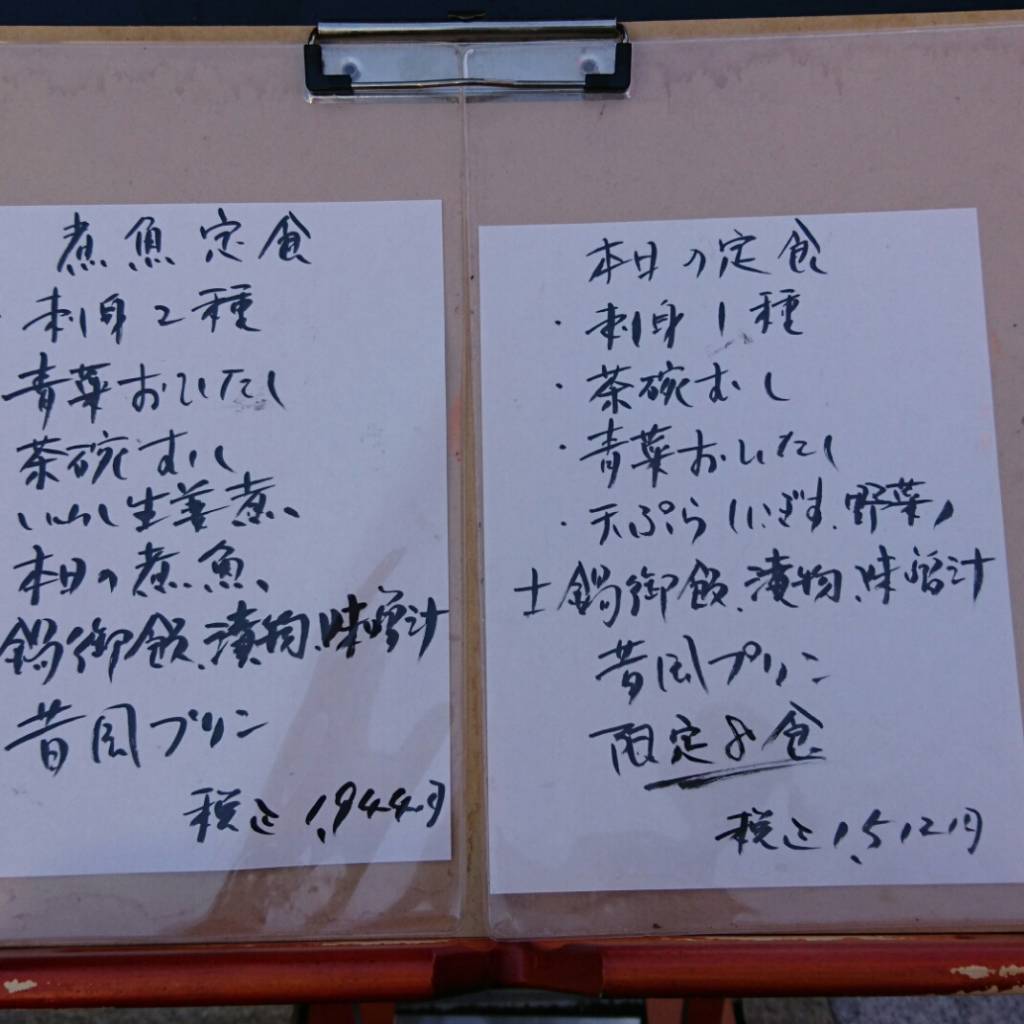 煮魚定食
・刺身2種
青菜おひたし
茶碗むし
いわし生姜煮、
本日の煮魚、
鍋御飯、漬物、味噌汁
昔風プリン
税込1,944円
本日の定食
・刺身1種
・茶碗むし
・青菜おひたし
・天ぷら(いぎす、野菜)
土鍋御飯、漬物、味噌汁
昔風プリン
限定8食
税込1,512円